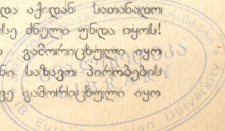 და აქიდან სათანადო
სე ძნელი უნდა იყოს!
გამორიცხული იყო
ნი საზავო პირობების
ვე გამორიცხული იყო